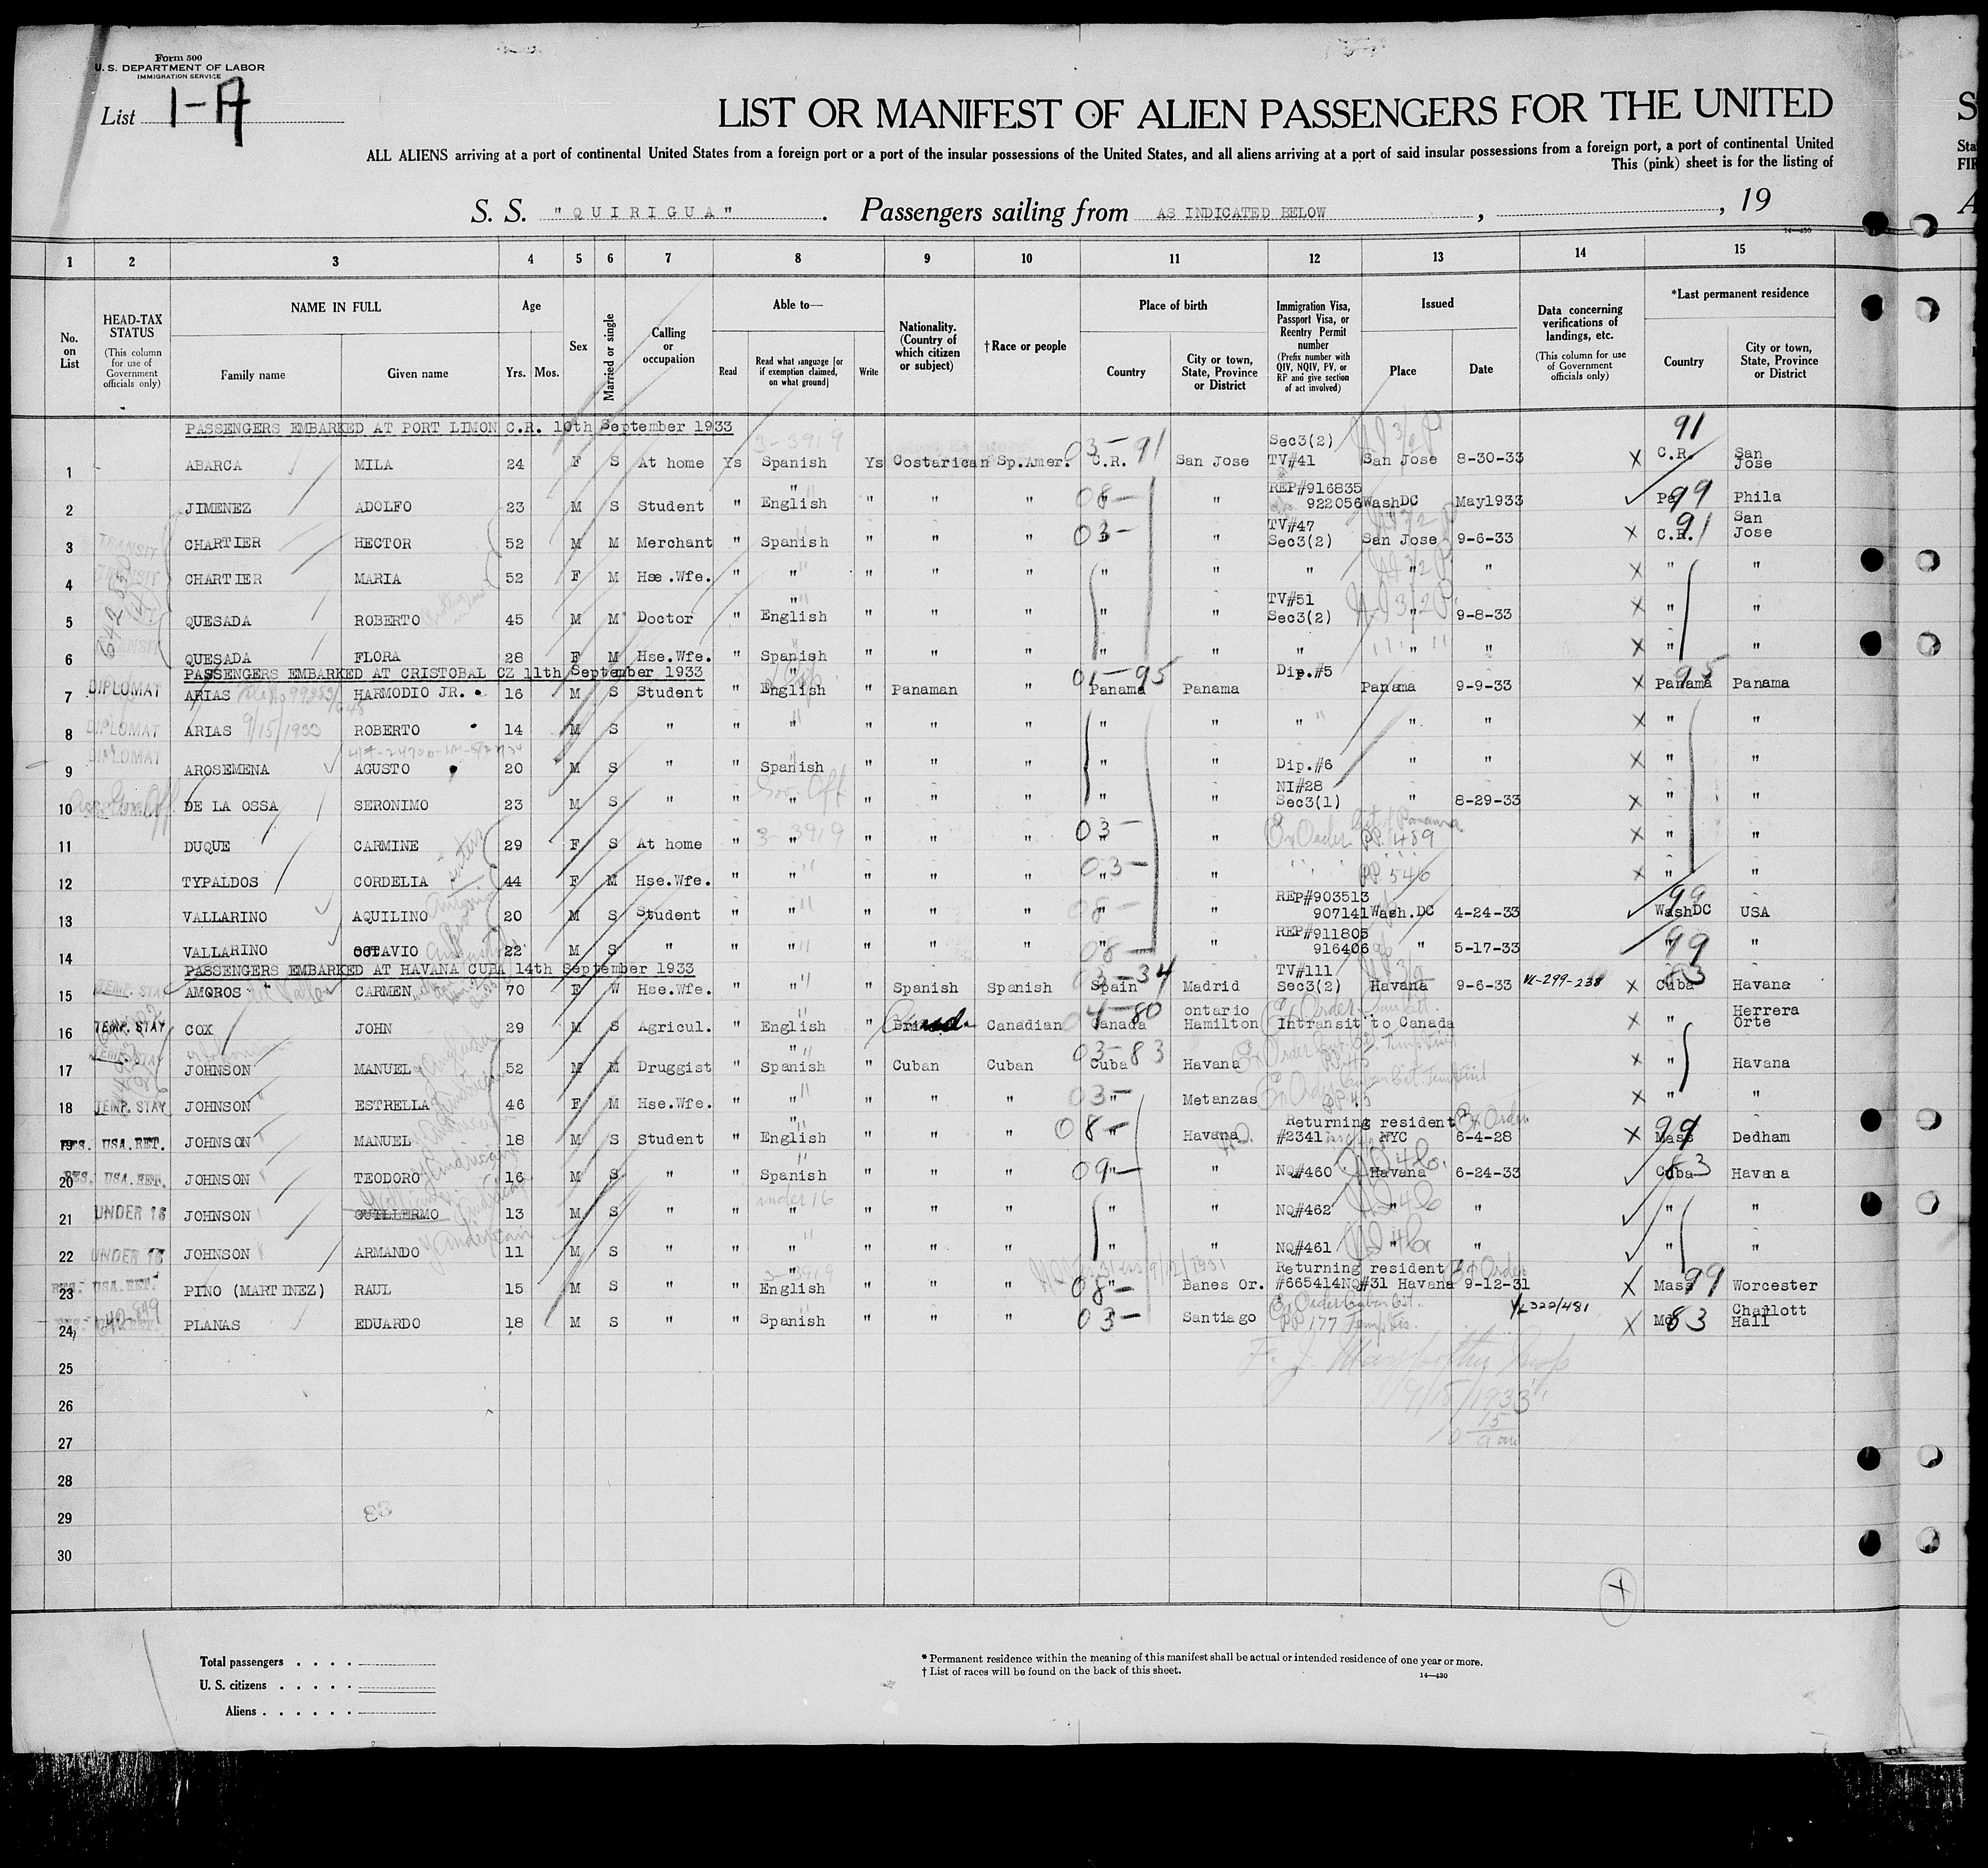 Form 500
U. S. DEPARTMENT OF LABOR
IMMIGRATION SERVICE
List 1-A
LIST OR MANIFEST OF ALIEN PASSENGERS FOR THE UNITED
S
ALL ALIENS arriving at a port of continental United States from a foreign port or a port of the insular possessions of the United States, and all aliens arriving at a port of said insular possessions from a foreign port, a port of continental United
Sta
This (pink) sheet is for the listing of
FIR
S. S. "QUIRIGUA". Passengers sailing from AS INDICATED BELOW, , 19
14—430
1 2 3 4 5 6 7 8 9 10 11 12 13 14 15
No. on List
HEAD-TAX STATUS
(This column for use of Government officials only)
NAME IN FULL
Family name
Given name
Age
Yrs. Mos.
Sex
Married or single
Calling or occupation
Able to—
Read
Read what language [or if exemption claimed, on what ground]
Write
Nationality. (Country of which citizen or subject)
† Race or people
Place of birth
Country
City or town, State, Province or District
Immigration Visa, Passport Visa, or Reentry Permit number
(Prefix number with QIV, NQIV, PV, or RP and give section of act involved)
Issued
Place
Date
Data concerning verifications of landings, etc.
(This column for use of Government officials only)
*Last permanent residence
Country
City or town, State, Province or District
PASSENGERS EMBARKED AT PORT LIMON C.R. 10th September 1933
1 ABARCA MILA 24 F S At home Ys 3-3919 Spanish Ys Costarican Sp.Amer. 03-91 C.R. San Jose Sec3(2) TV#41 San Jose 8-30-33 X 91 C.R. San Jose
2 JIMENEZ ADOLFO 23 M S Student " " English " " " 08- " " REP#916835 922056 WashDC May1933 ✓ Pa 99 Phila
3 TRANSIT CHARTIER HECTOR 52 M M Merchant " Spanish " " " 03- " TV#47 Sec3(2) San Jose 9-6-33 X 91 C.R. San Jose
4 TRANSIT CHARTIER MARIA 52 F M Hse.Wfe. " " " " " " " " " " X " "
5 QUESADA ROBERTO 45 M M Doctor " " English " " " " " TV#51 Sec3(2) " 9-8-33 X " "
6 TRANSIT QUESADA FLORA 28 F M Hse.Wfe. " Spanish " " " " " " " " X " "
PASSENGERS EMBARKED AT CRISTOBAL CZ 11th September 1933
7 DIPLOMAT ARIAS HARMODIO JR. 16 M S Student " English " Panaman " 01-95 Panama Panama Dip.#5 Panama 9-9-33 X 95 Panama Panama
8 DIPLOMAT ARIAS 9/15/1933 ROBERTO 14 M S " " " " " " " " " " " X " "
9 DIPLOMAT AROSEMENA AGUSTO 20 M S " " Spanish " " " " " Dip.#6 " " X " "
10 DE LA OSSA SERONIMO 23 M S " " Gov. Off " " " " " " NI#28 Sec3(1) " 8-29-33 X " "
11 DUQUE CARMINE 29 F S At home " 3-3919 " " " " 03- " " Ex Order Cit of Panama PP.1489 X " "
12 TYPALDOS CORDELIA 44 F M Hse.Wfe. " " " " " 03- " " " " PP 546 X " "
13 VALLARINO AQUILINO 20 M S Student " " " " " 08- " " REP#903513 907141 Wash.DC 4-24-33 ✓ 99 WashDC USA
14 VALLARINO OCTAVIO 22 M S " " " " " " 08- " " REP#911805 916406 " 5-17-33 99 " "
PASSENGERS EMBARKED AT HAVANA CUBA 14th September 1933
15 TEMP. STAY AMOROS CARMEN 70 F W Hse.Wfe. " " " Spanish Spanish 03-34 Spain Madrid TV#111 Sec3(2) Havana 9-6-33 VL-299-238 X 83 Cuba Havana
16 TEMP. STAY COX JOHN 29 M S Agricul. " English " Canadian 04-80 Canada ontario Hamilton Ex Order Intransit to Canada X " Herrera Orte
17 TEMP. STAY JOHNSON MANUEL 52 M M Druggist " Spanish " Cuban Cuban 03-83 Cuba Havana Ex Order PP 45 X " Havana
18 TEMP. STAY JOHNSON ESTRELLA 46 F M Hse.Wfe. " " " " " 03- " Metanzas Ex Order PP 45 X " "
19 RES. USA.RET. JOHNSON MANUEL 18 M S Student " English " " " 08- " Havana Returning resident #2341 NYC 6-4-28 Ex Order X 99 Mass Dedham
20 RES. USA.RET. JOHNSON TEODORO 16 M S " " Spanish " " " 09- " " NQ#460 Havana 6-24-33 ✓ 83 Cuba Havana
21 UNDER 16 JOHNSON GUILLERMO 13 M S " " under 16 " " " " " " NQ#462 " " ✓ " "
22 UNDER 16 JOHNSON ARMANDO 11 M S " " " " " " " " NQ#461 " " ✓ " "
23 RES. USA.RET. PINO (MARTINEZ) RAUL 15 M S " " 3-3919 English " " " 08- " Banes Or. Returning resident #665414NQ#31 Havana 9-12-31 Ex Order X Mass 99 Worcester
24 PLANAS EDUARDO 18 M S " " Spanish " " " 03- " Santiago Ex Order Cuban Cit. PP 177 Temp Vis. VL322/481 X Md 83 Charlott Hall
25
26 9/15/1933
27
28
29
30
X
Total passengers . . . .
U. S. citizens . . . . .
Aliens . . . . . .
* Permanent residence within the meaning of this manifest shall be actual or intended residence of one year or more.
† List of races will be found on the back of this sheet.
14—430